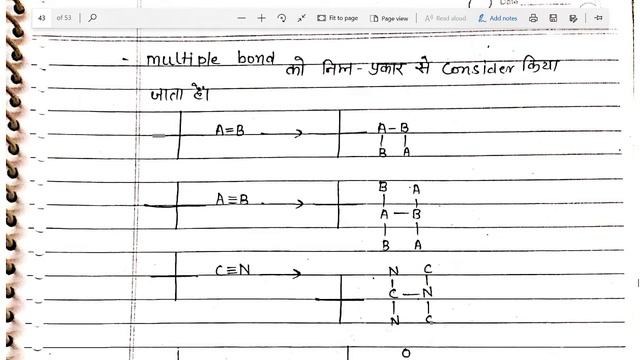 Date
43 of 53 Fit to page Page view Read aloud Add notes
- multiple bond को निम्न-प्रकार से Consider किया
जाता है।
A=B → A-B
B A
B A
A≡B → A-B
B A
N C
C≡N → C-N
N C
O